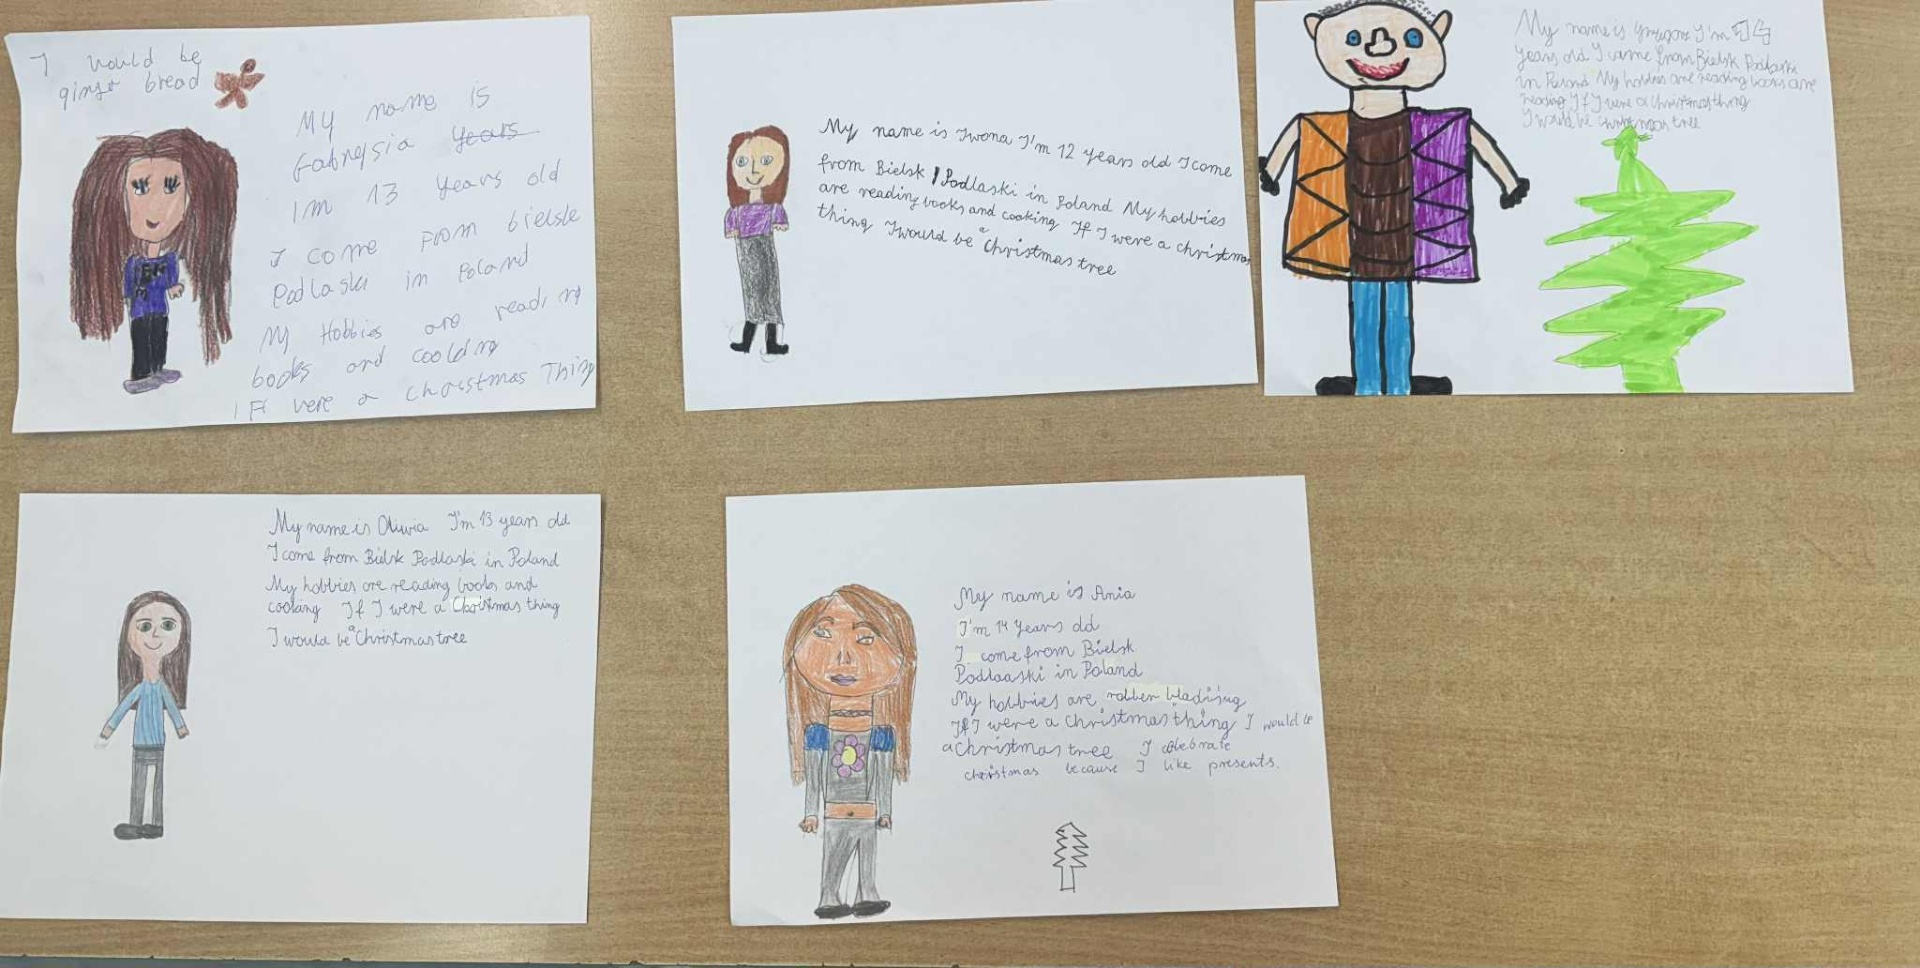 I would be
ginger bread
My name is
Gabrysia years
I'm 13 years old
I come from bielsk
Podlaski in Poland
My Hobbies are reading
books and cooking
IF I were a christmas Thing
My name is Iwona I'm 12 years old I come
from Bielsk Podlaski in Poland My hobbies
are reading books and cooking If I were a christmas
thing I would be a christmas tree
My name is I'm 14
years old I came from Bielsk Podlaski
in Poland My hobbies are reading books are
reading If I were a christmas thing
I would be christmas tree
My name is Oliwia I'm 13 years old
I come from Bielsk Podlaski in Poland
My hobbies are reading books and
cooking If I were a Christmas thing
I would be a Christmas tree
My name is Ania
I'm 14 years old
I come from Bielsk
Podlaaski in Poland
My hobbies are rollen blading
If I were a christmas thing I would be
a christmas tree I celebrate
christmas because I like presents.